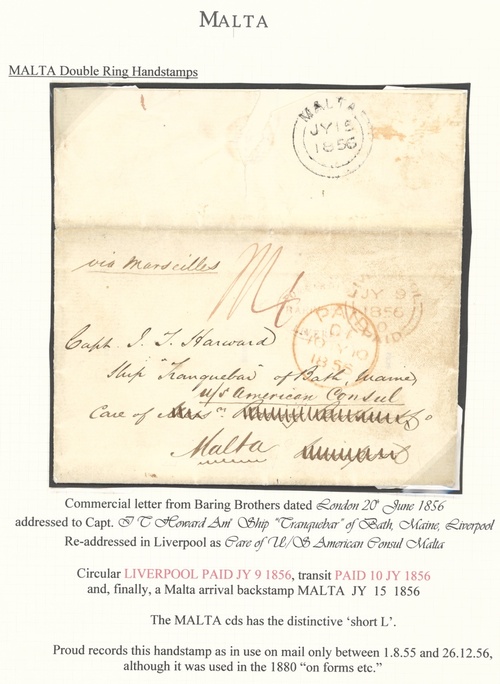 MALTA
MALTA Double Ring Handstamps
MALTA
JY 15
1856
via Marseilles
JY 9
1856
PAID
PAID
10 JY 10
1856
Capt. J. T. Harward
Ship "Tranquebar" of Bath, Maine,
U/S American Consul
Care of
Malta
Commercial letter from Baring Brothers dated London 20th June 1856
addressed to Capt. I T Howard Am' Ship "Tranquebar" of Bath, Maine, Liverpool
Re-addressed in Liverpool as Care of U/S American Consul Malta
Circular LIVERPOOL PAID JY 9 1856, transit PAID 10 JY 1856
and, finally, a Malta arrival backstamp MALTA JY 15 1856
The MALTA cds has the distinctive 'short L'.
Proud records this handstamp as in use on mail only between 1.8.55 and 26.12.56,
although it was used in the 1880 "on forms etc."